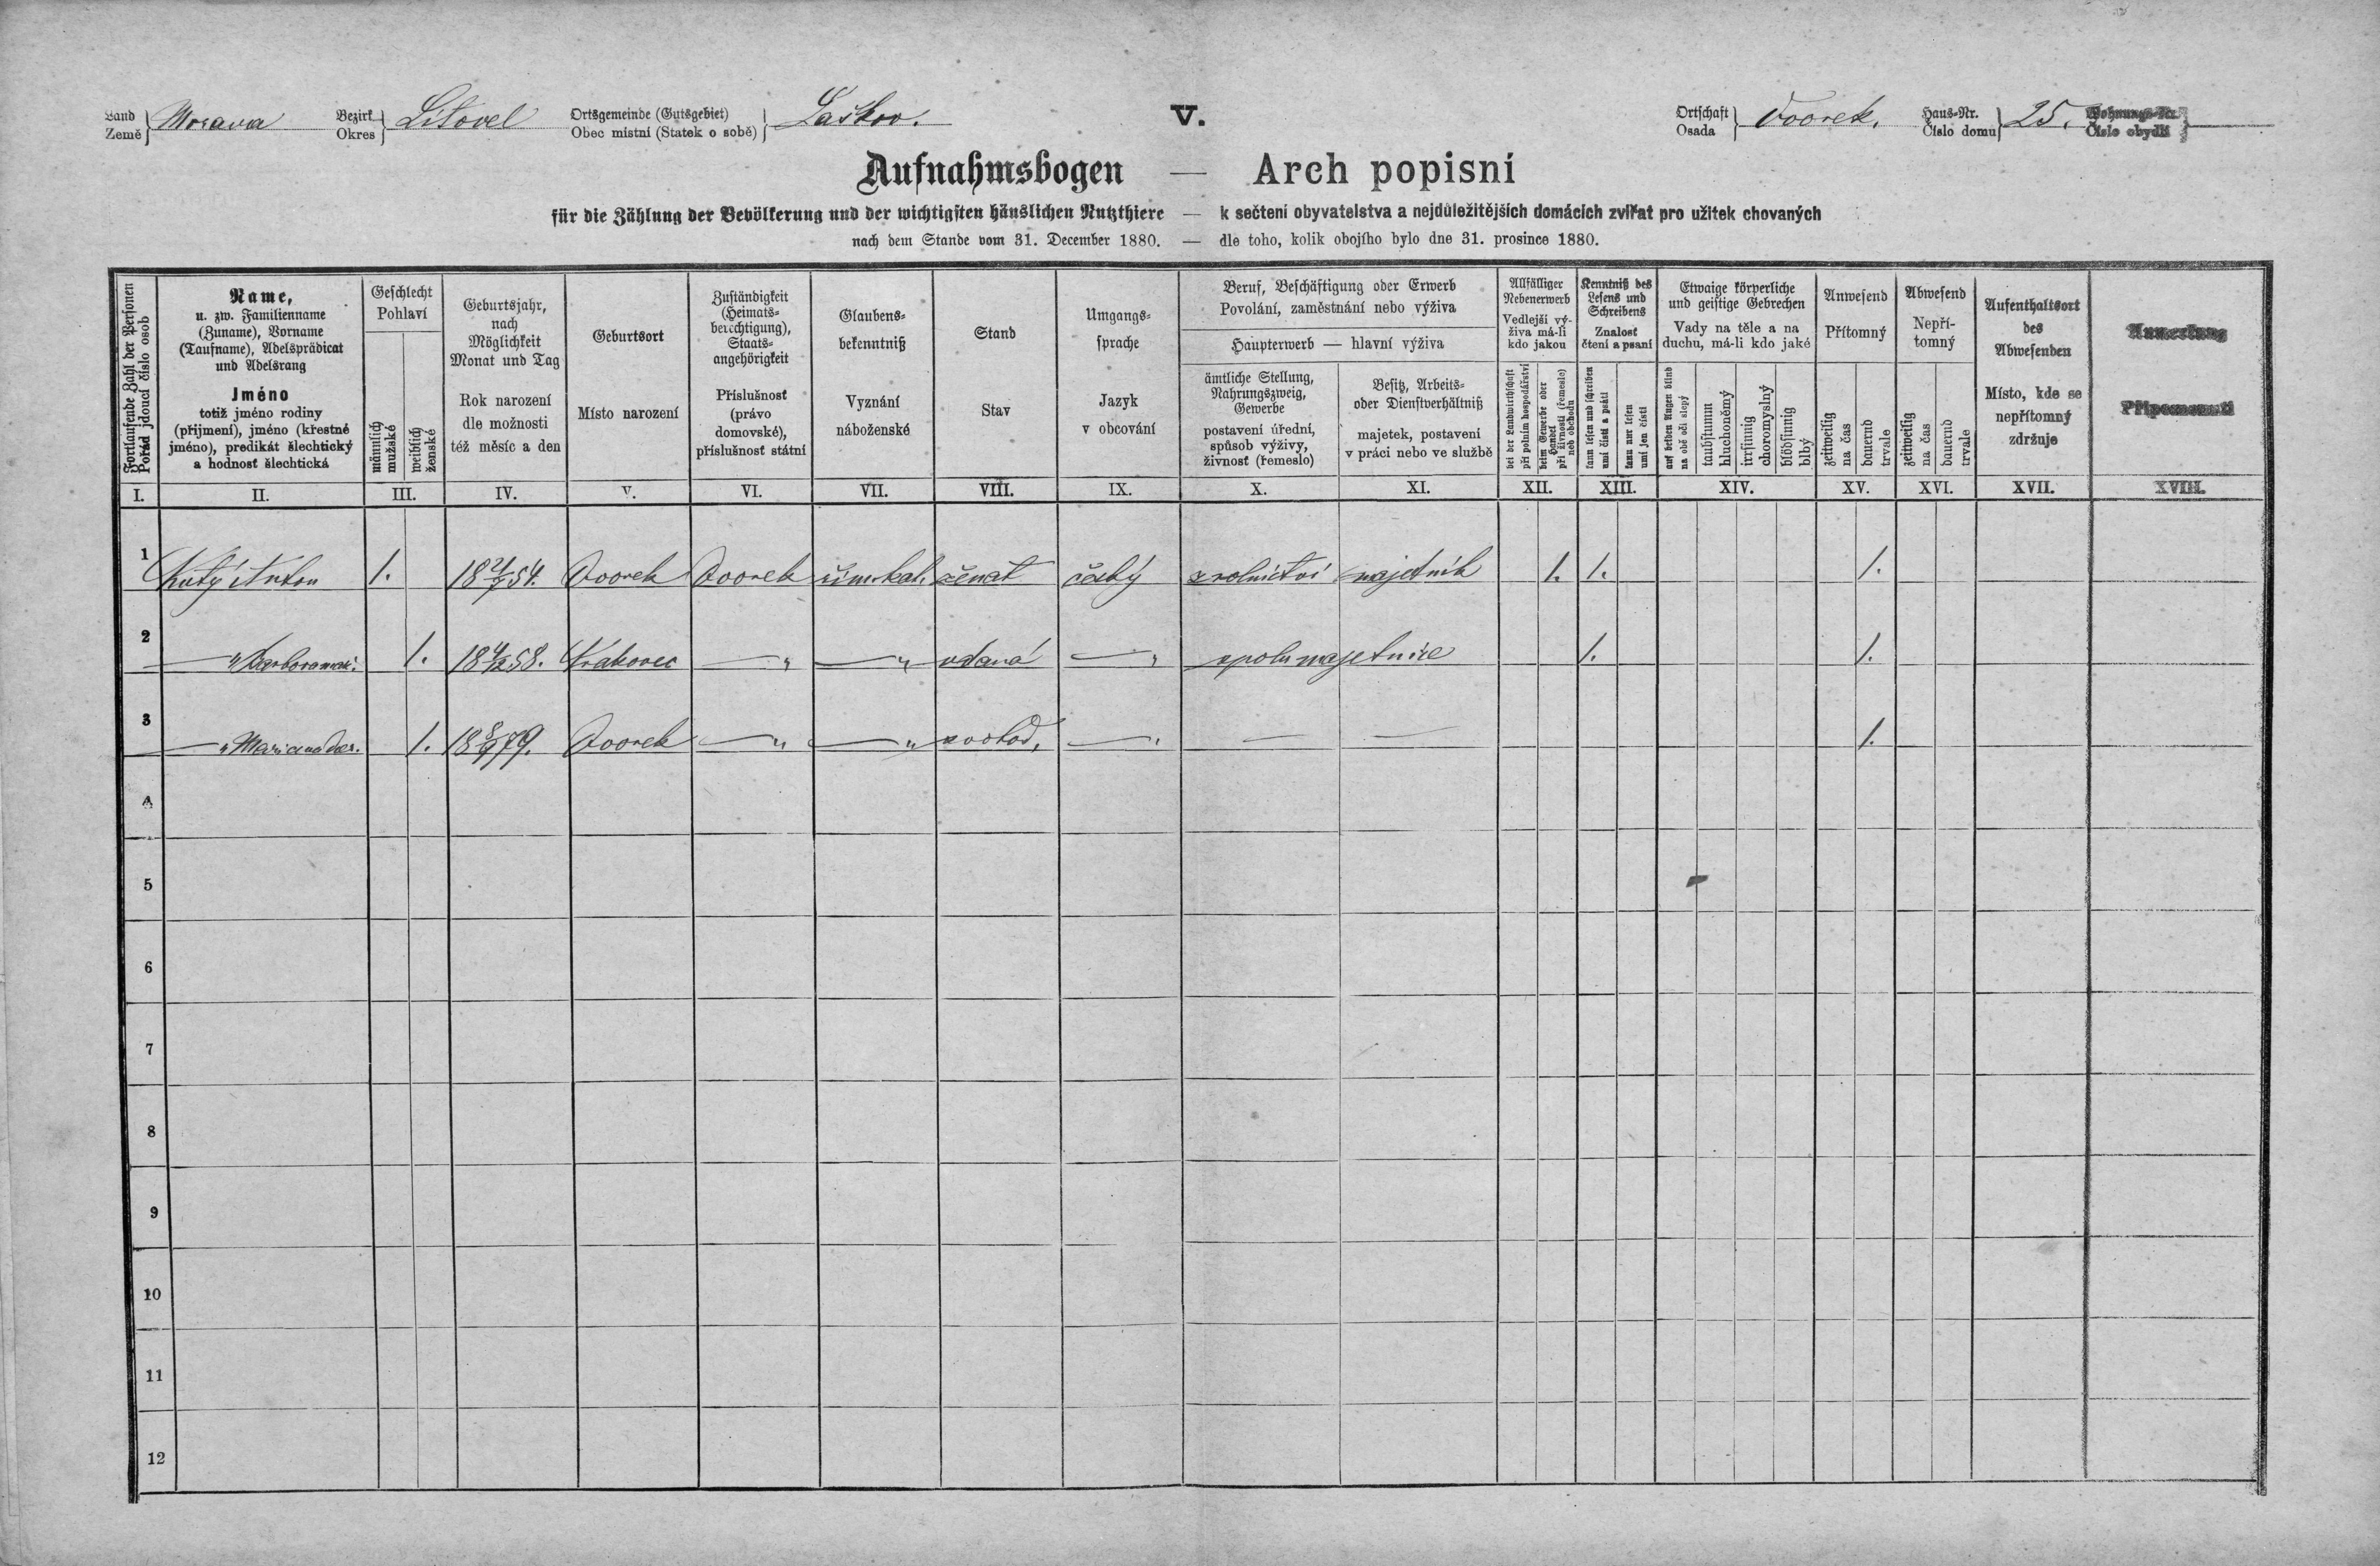 Land
Země
Morava
Bezirk
Okres
Litovel
Ortsgemeinde (Gutsgebiet)
Obec místní (Statek o sobě)
Laškov.
V.
Ortschaft
Osada
Dvorek.
Haus-Nr.
Číslo domu
25.
Wohnungs-Nr.
Číslo obydlí
Aufnahmsbogen — Arch popisní
für die Zählung der Bevölkerung und der wichtigsten häuslichen Nutzthiere — k sečtení obyvatelstva a nejdůležitějších domácích zvířat pro užitek chovaných
nach dem Stande vom 31. December 1880. — dle toho, kolik obojího bylo dne 31. prosince 1880.
Fortlaufende Zahl der Personen
Pořád jdoucí číslo osob
Name,
u. zw. Familienname
(Zuname), Vorname
(Taufname), Adelsprädicat
und Adelsrang
Jméno
totiž jméno rodiny
(přijmení), jméno (křestné
jméno), predikát šlechtický
a hodnosť šlechtická
Geschlecht
Pohlaví
männlich
mužské
weiblich
ženské
Geburtsjahr,
nach
Möglichkeit
Monat und Tag
Rok narození
dle možnosti
též měsíc a den
Geburtsort
Místo narození
Zuständigkeit
(Heimats-
berechtigung),
Staats-
angehörigkeit
Příslušnosť
(právo
domovské),
příslušnosť státní
Glaubens-
bekenntniß
Vyznání
náboženské
Stand
Stav
Umgangs-
sprache
Jazyk
v obcování
Beruf, Beschäftigung oder Erwerb
Povolání, zaměstnání nebo výživa
Haupterwerb — hlavní výživa
ämtliche Stellung,
Nahrungszweig,
Gewerbe
postavení úřední,
spůsob výživy,
živnosť (řemeslo)
Besitz, Arbeits-
oder Dienstverhältniß
majetek, postavení
v práci nebo ve službě
Allfälliger
Nebenerwerb
Vedlejší vý-
živa má-li
kdo jakou
bei der Landwirthschaft
při polním hospodářství
beim Gewerbe oder
Handel
při živnosti (řemesle)
neb obchodu
Kenntniß des
Lesens und
Schreibens
Znalosť
čtení a psaní
kann lesen und schreiben
umí čísti a psáti
kann nur lesen
umí jen čísti
Etwaige körperliche
und geistige Gebrechen
Vady na těle a na
duchu, má-li kdo jaké
auf beiden Augen blind
na obě oči slepý
taubstumm
hluchoněmý
irrsinnig
choromyslný
blödsinnig
blbý
Anwesend
Přítomný
zeitweilig
na čas
dauernd
trvale
Abwesend
Nepří-
tomný
zeitweilig
na čas
dauernd
trvale
Aufenthaltsort
des
Abwesenden
Místo, kde se
nepřítomný
zdržuje
Anmerkung
Připomenutí
I. II. III. IV. V. VI. VII. VIII. IX. X. XI. XII. XIII. XIV. XV. XVI. XVII. XVIII.
1 Anton 1. 18 54. Dvorek Dvorek řím. kat. ženat český z rolnictví majetník 1. 1. 1.
2 — " Barbora 1. 18 58. Krakovec — " — " vdaná — " spolumajetnice 1. 1.
3 — " Mariana dcer. 1. 18 79. Dvorek — " — " svobod. — " — — 1.
4
5
6
7
8
9
10
11
12